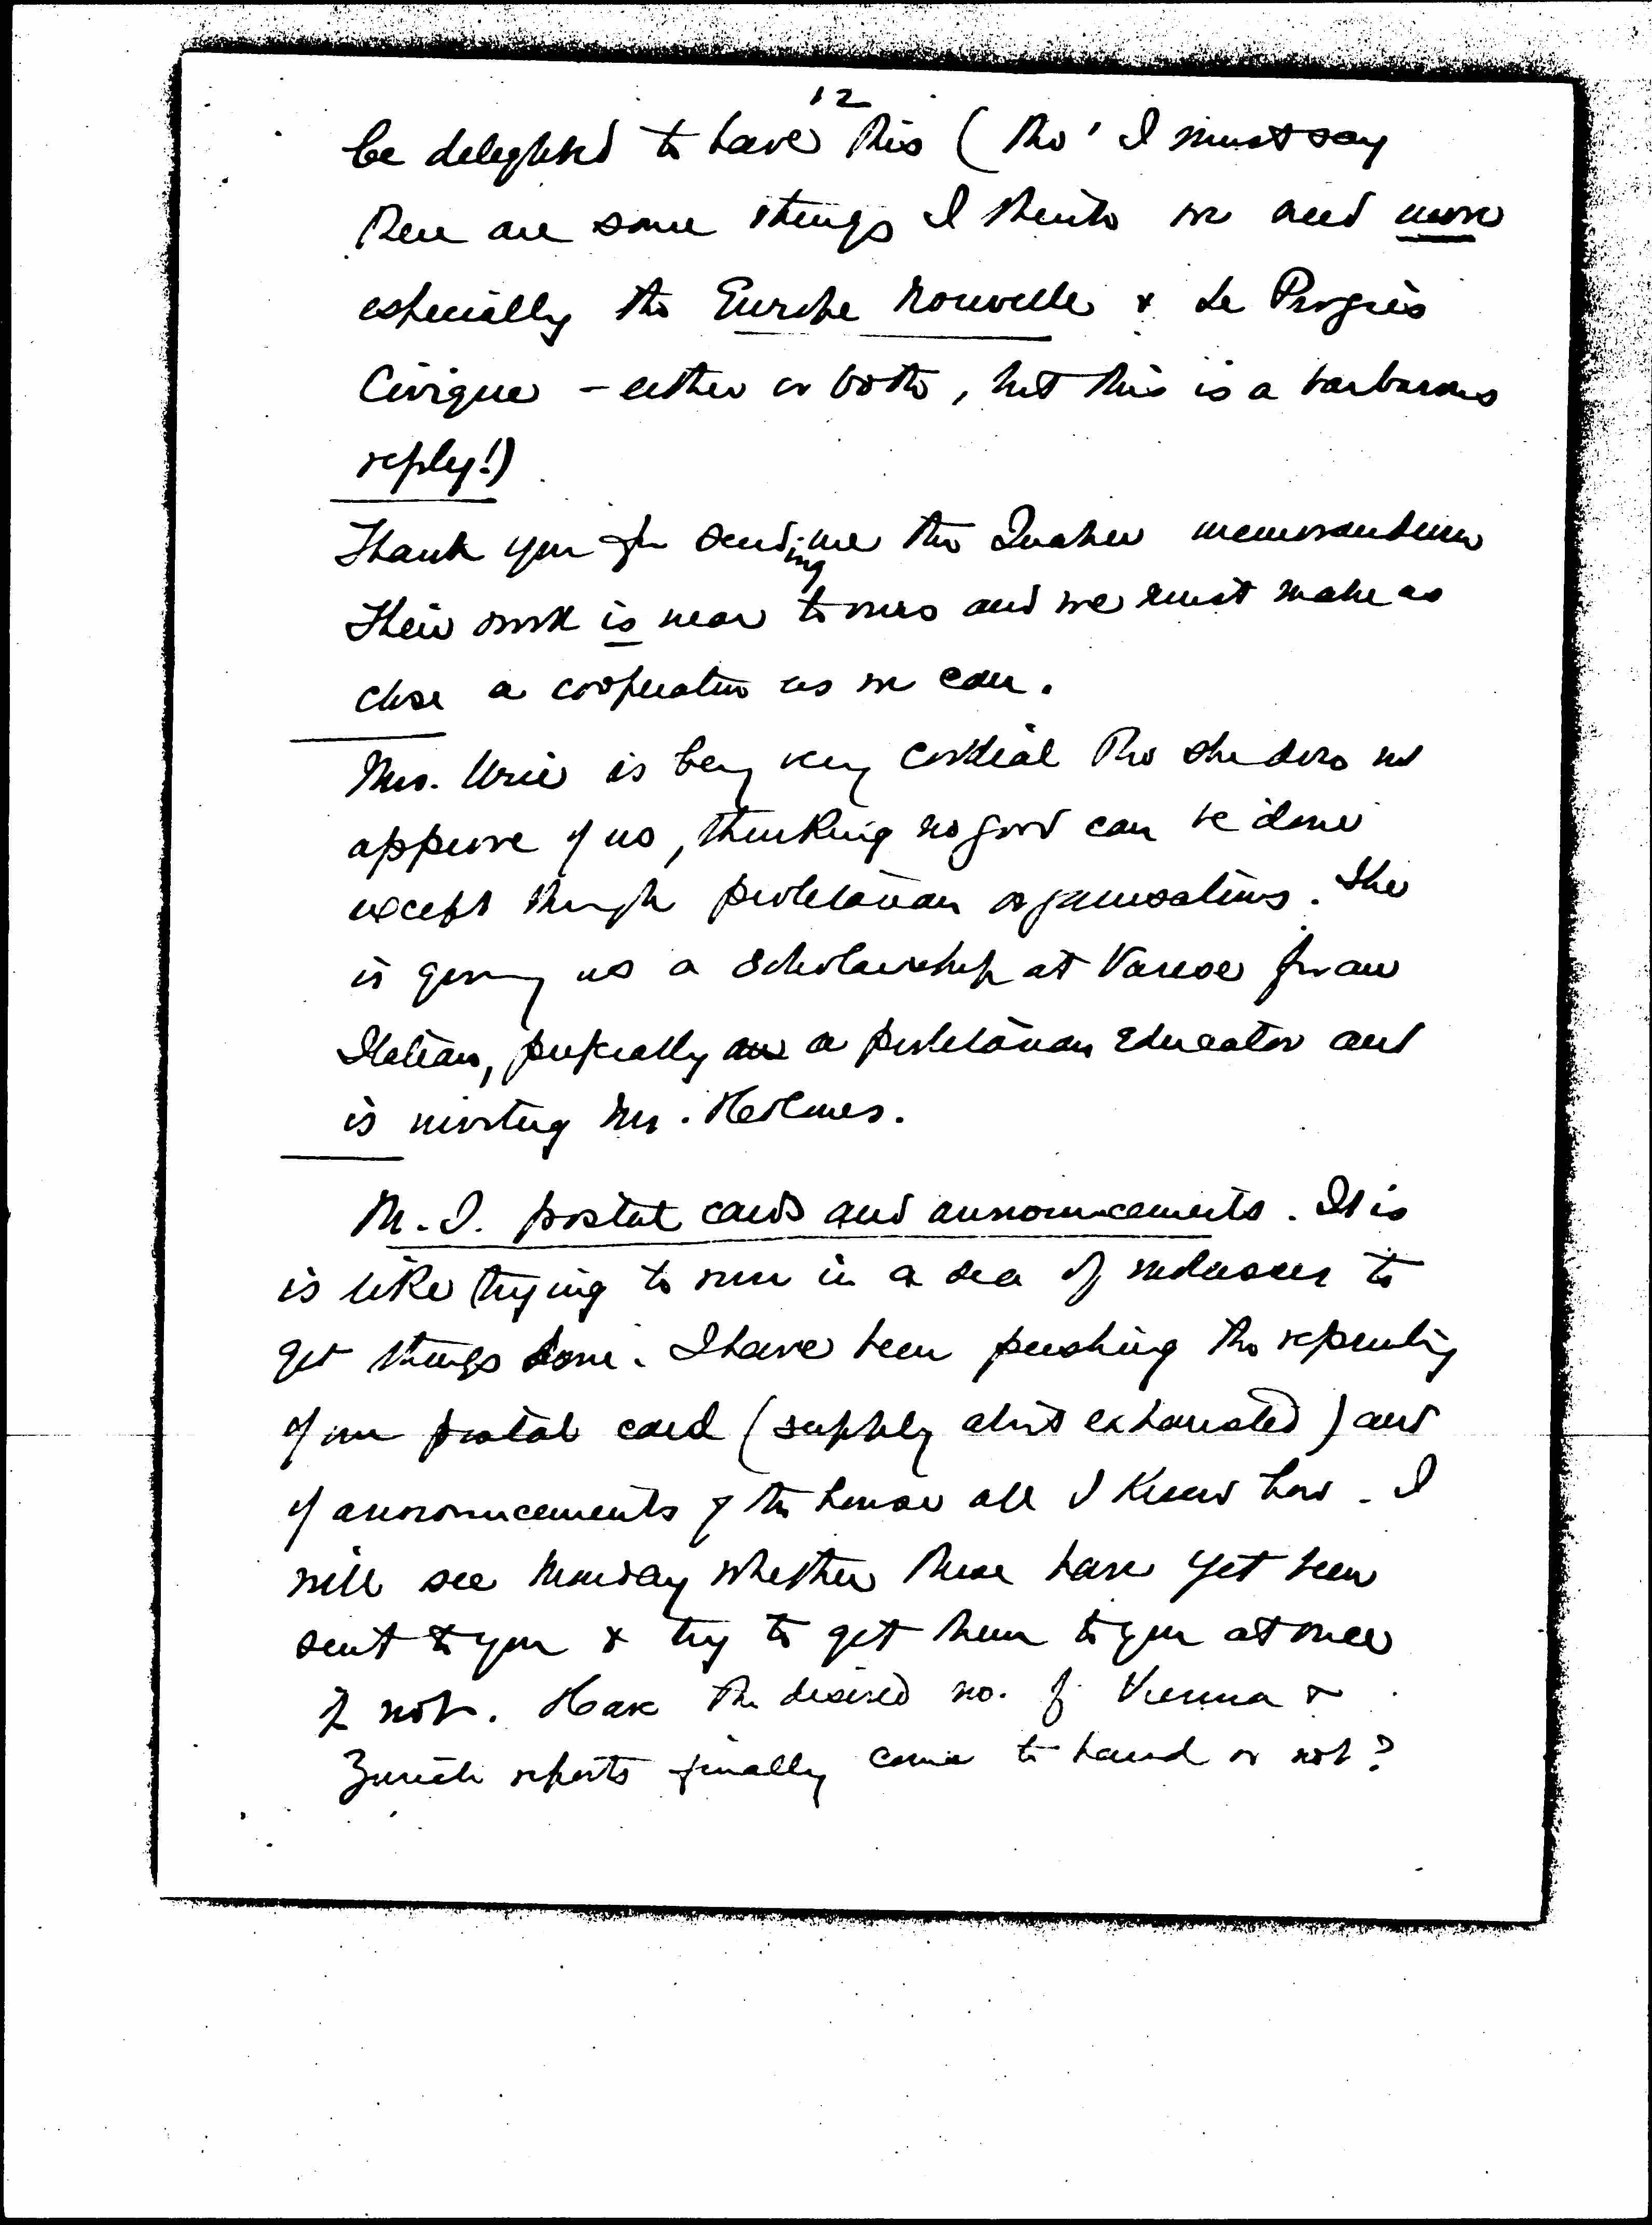 12
be delighted to have this (tho' I must say
there are some things I think we need more
especially the Europe Nouvelle & Le Progrès
Civique - either or both, but this is a barbarous
reply!)
Thank you for sending me the Quaker memorandum
Their work is near to ours and we must make as
close a cooperation as we can.
Mrs. is being very cordial tho she does not
approve of us, thinking no good can be done
except through proletarian organisations. She
is giving us a scholarship at Varese for an
Italian, preferably an a proletarian educator and
is inviting Mr. Holmes.
M.I. postal cards and announcements. It is
is like trying to run in a sea of molasses to
get things done. I have been pushing the reprinting
of our postal card (supply abt exhausted) and
of announcements of the house all I know how. I
will see Monday whether these have yet been
sent to you & try to get them to you at once
if not. Have the desired no. of Vienna &
Zurich reports finally come to hand or not?